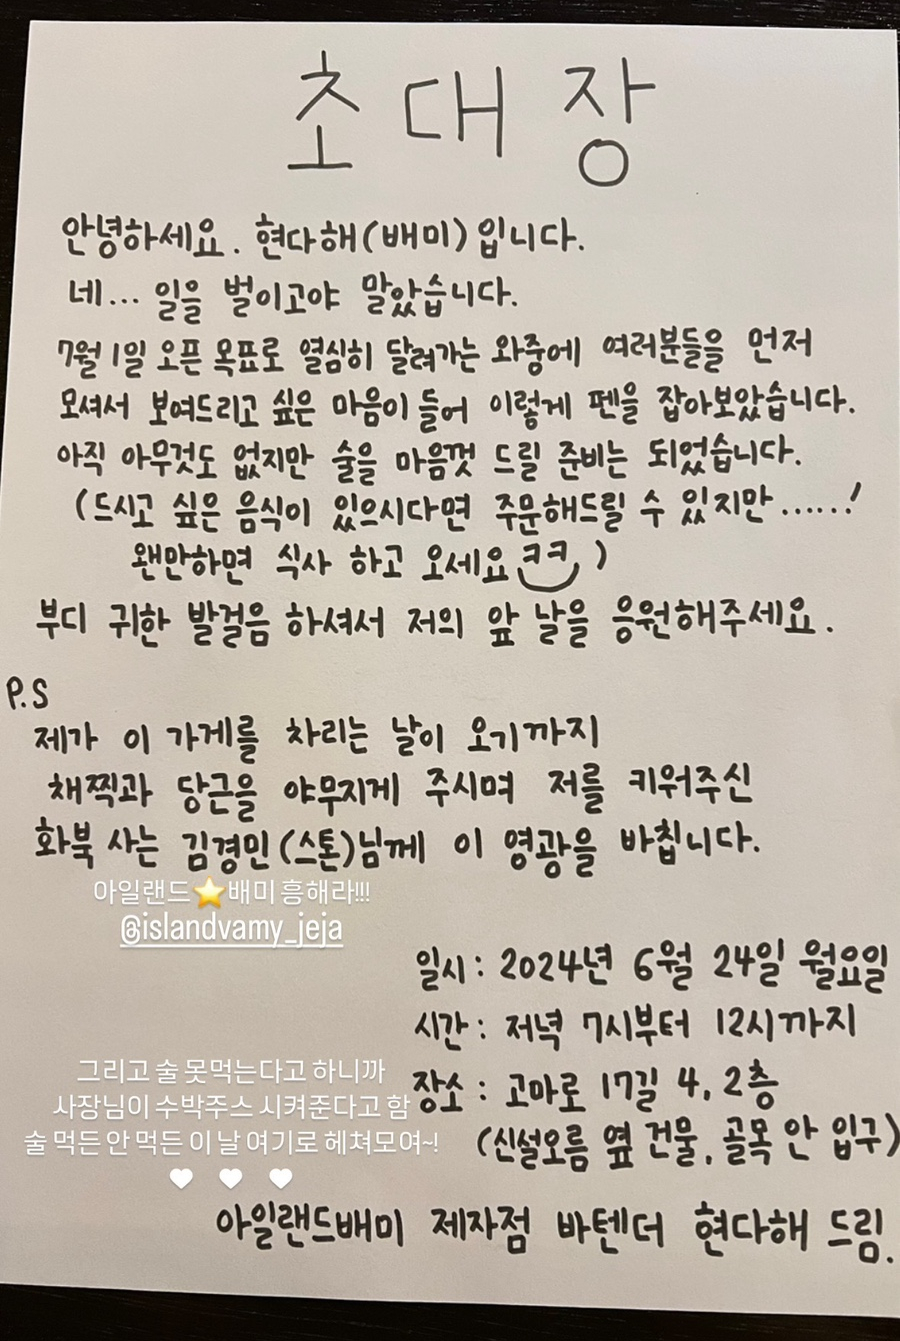 초대장
안녕하세요. 현다해(배미)입니다.
네... 일을 벌이고야 말았습니다.
7월 1일 오픈 목표로 열심히 달려가는 와중에 여러분들을 먼저
모셔서 보여드리고 싶은 마음이 들어 이렇게 펜을 잡아보았습니다.
아직 아무것도 없지만 술을 마음껏 드릴 준비는 되었습니다.
(드시고 싶은 음식이 있으시다면 주문해드릴 수 있지만......!
왠만하면 식사 하고 오세요ㅋㅋ)
부디 귀한 발걸음 하셔서 저의 앞 날을 응원해주세요.
P.S
제가 이 가게를 차리는 날이 오기까지
채찍과 당근을 야무지게 주시며 저를 키워주신
화북 사는 김경민(스톤)님께 이 영광을 바칩니다.
아일랜드⭐배미 흥해라!!!
@islandvamy_jeja
일시: 2024년 6월 24일 월요일
시간: 저녁 7시부터 12시까지
그리고 술 못먹는다고 하니까
사장님이 수박주스 시켜준다고 함
술 먹든 안 먹든 이 날 여기로 헤쳐모여~!
🤍 🤍 🤍
장소: 고마로 17길 4, 2층
(신설오름 옆 건물, 골목 안 입구)
아일랜드배미 제자점 바텐더 현다해 드림.